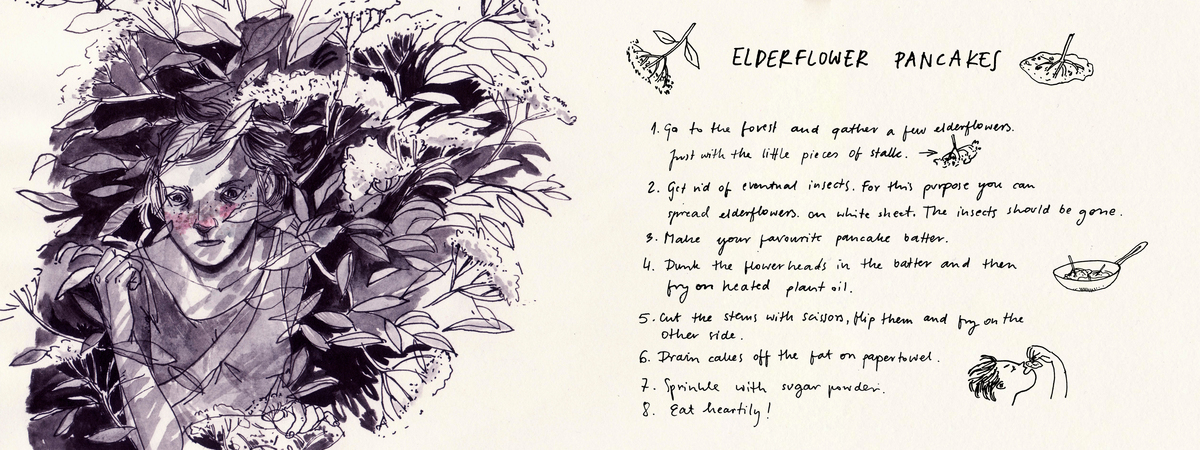 ELDERFLOWER PANCAKES
1. Go to the forest and gather a few elderflowers.
Just with the little pieces of stalk.
2. Get rid of eventual insects. For this purpose you can
spread elderflowers on white sheet. The insects should be gone.
3. Make your favourite pancake batter.
4. Dunk the flowerheads in the batter and then
fry on heated plant oil.
5. Cut the stems with scissors, flip them and fry on the
other side.
6. Drain cakes off the fat on papertowel.
7. Sprinkle with sugar powder.
8. Eat heartily!